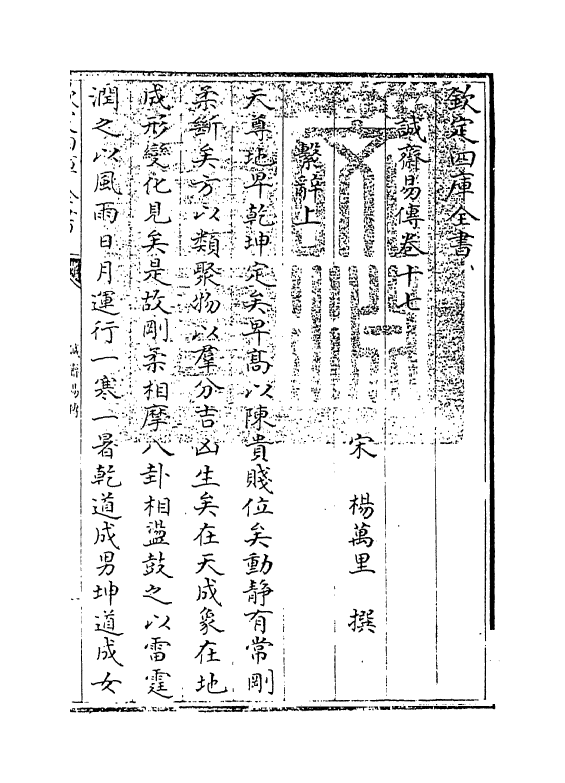 欽定四庫全書
誠齋易傳卷十七
宋 楊萬里 撰
繫辭上
天尊地卑乾坤定矣卑高以陳貴賤位矣動靜有常剛
柔斷矣方以類聚物以羣分吉凶生矣在天成象在地
成形變化見矣是故剛柔相摩八卦相盪鼓之以雷霆
潤之以風雨日月運行一寒一暑乾道成男坤道成女